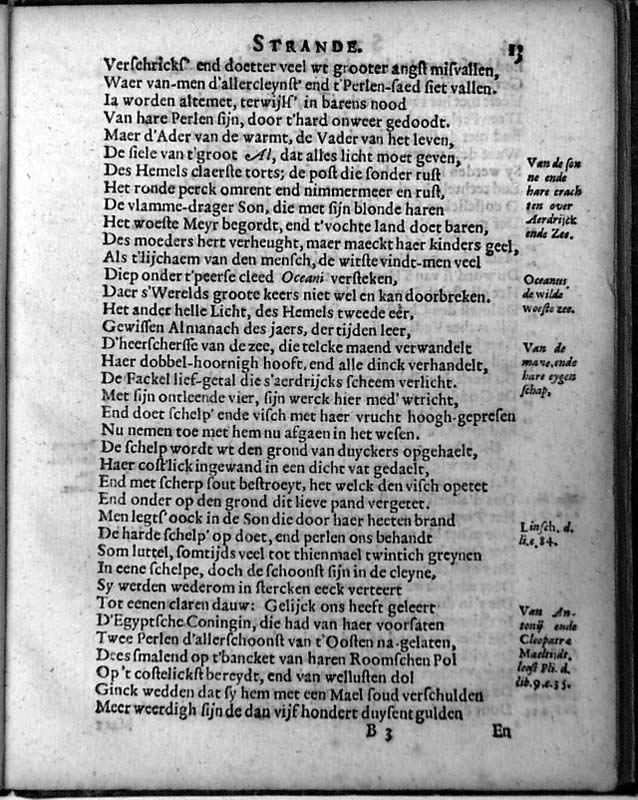 STRANDE. 13
Verschrickt' end doetter veel wt grooter angst misvallen,
Waer van-men d'allercleynst' end t'Perlen-saed siet vallen.
Ia worden altemet, terwijls' in barens nood
Van hare Perlen sijn, door t'hard onweer gedoodt.
Maer d'Ader van de warmt, de Vader van het leven,
De siele van t'groot Al, dat alles licht moet geven,
Des Hemels claerste torts; de post die sonder rust
Het ronde perck omrent end nimmermeer en rust,
De vlamme-drager Son, die met sijn blonde haren
Het woeste Meyr begordt, end t'vochte land doet baren,
Des moeders hert verheught, maer maeckt haer kinders geel,
Als t'lijchaem van den mensch, de witste vindt-men veel
Diep onder t'peerse cleed Oceani versteken,
Daer s'Werelds groote keers niet wel en kan doorbreken.
Het ander helle Licht, des Hemels tweede eer,
Gewissen Almanach des jaers, der tijden leer,
D'heerschersse van de zee, die telcke maend verwandelt
Haer dobbel-hoornigh hooft, end alle dinck verhandelt,
De Fackel lief-getal die s'aerdrijcks scheem verlicht.
Met sijn ontleende vier, sijn werck hier med' wtricht,
End doet schelp' ende visch met haer vrucht hoogh-gepresen
Nu nemen toe met hem nu afgaen in het wesen.
De schelp wordt wt den grond van duyckers opgehaelt,
Haer costlick ingewand in een dicht vat gedaelt,
End met scherp sout bestroeyt, het welck den visch opetet
End onder op den grond dit lieve pand vergetet.
Men legts oock in de Son die door haer heeten brand
De harde schelp' op doet, end perlen ons behandt
Som luttel, somtijds veel tot thienmael twintich greynen
In eene schelpe, doch de schoonst sijn in de cleyne,
Sy werden wederom in stercken eeck verteert
Tot eenen claren dauw: Gelijck ons heeft geleert
D'Egyptsche Coningin, die had van haer voorsaten
Twee Perlen d'allerschoonst van t'Oosten na-gelaten,
Dees smalend op t'bancket van haren Roomschen Pol
Op 't costelickst bereydt, end van wellusten dol
Ginck wedden dat sy hem met een Mael soud verschulden
Meer weerdigh sijnde dan vijf hondert duysent gulden
B 3 En
Van de son
ne ende
hare crach
ten over
Aerdrijck
ende Zee.
Oceanus
de wilde
woeste zee.
Van de
mane, ende
hare eygen
schap,
Linsch. d.
li. c. 84.
Van An-
tonij ende
Cleopatra
Maeltijdt,
leest Pli. d.
lib. 9. c. 35.